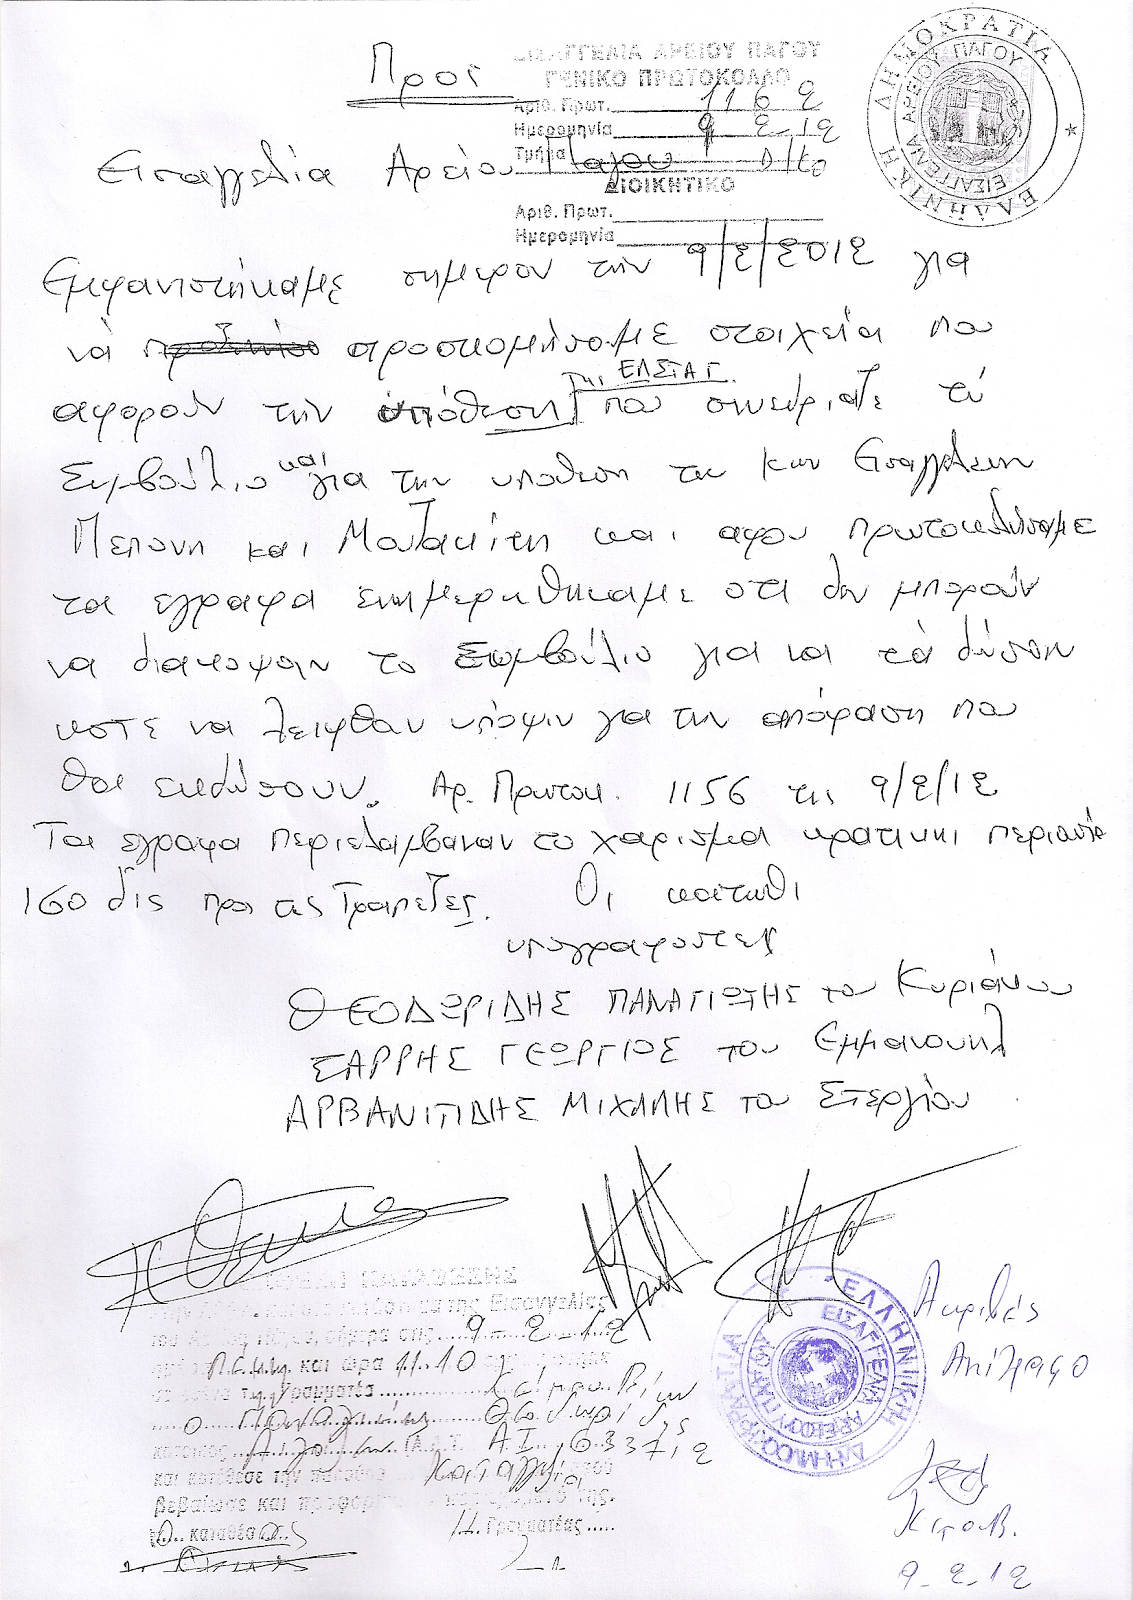 Προς
ΕΙΣΑΓΓΕΛΙΑ ΑΡΕΙΟΥ ΠΑΓΟΥ
ΓΕΝΙΚΟ ΠΡΩΤΟΚΟΛΛΟ
Αριθ. Πρωτ. 1162
Ημερομηνία 9 2-12
Τμήμα
ΔΙΟΙΚΗΤΙΚΟ
Αριθ. Πρωτ.
Ημερομηνία
ΕΛΛΗΝΙΚΗ ΔΗΜΟΚΡΑΤΙΑ
ΕΙΣΑΓΓΕΛΙΑ ΑΡΕΙΟΥ ΠΑΓΟΥ
Εισαγγελία Αρείου Παγου
Εμφανιστήκαμε σημερον την 9/2/2012 για
νά προσκομήσομε στοιχεία που
αφορούν την υπόθεση της ΕΛΣΤΑΤ. που συνεδριαζε τό
Συμβούλιο και για την υποθεση των κων Εισαγγελεων
Πεπονη και Μουζακίτη και αφου πρωτοκολήσαμε
τα εγραφα ενημερωθηκαμε οτι δεν μπορούν
να διακοψουν το Συμβούλιο για να τά δώσουν
ωστε να λειφθουν υπόψιν για την απόφαση που
θα εκδώσουν. Αρ. Πρωτοκ. 1156 της 9/2/12
Τα εγραφα περιελαμβαναν το χαρισμα κρατικης περιουσία
160 δις προς τις Τραπεζες. Οι κατωθι
υπογραφοντες
ΘΕΟΔΩΡΙΔΗΣ ΠΑΝΑΓΙΩΤΗΣ του Κυριάκου
ΣΑΡΡΗΣ ΓΕΩΡΓΙΟΣ του Εμμανουηλ
ΑΡΒΑΝΙΤΙΔΗΣ ΜΙΧΑΛΗΣ του Στεργίου
της Εισαγγελίας
Αρείου Πάγου, σήμερα στις 9-2-12
ημέρα Πεμπ. και ώρα 11.10
Γραμματέα
ο Παναγιώτης Θεοδωρίδης
κάτοικος Α.Δ.Τ. ΑΙ 633712
και κατέθεσε την παρούσα
βεβαίωσε και προφορικά το περιεχόμενό της.
Ο καταθέσας Η Γραμματέας
ΕΛΛΗΝΙΚΗ ΔΗΜΟΚΡΑΤΙΑ
ΕΙΣΑΓΓΕΛΙΑ ΑΡΕΙΟΥ ΠΑΓΟΥ
Ακριβές
9-2-12